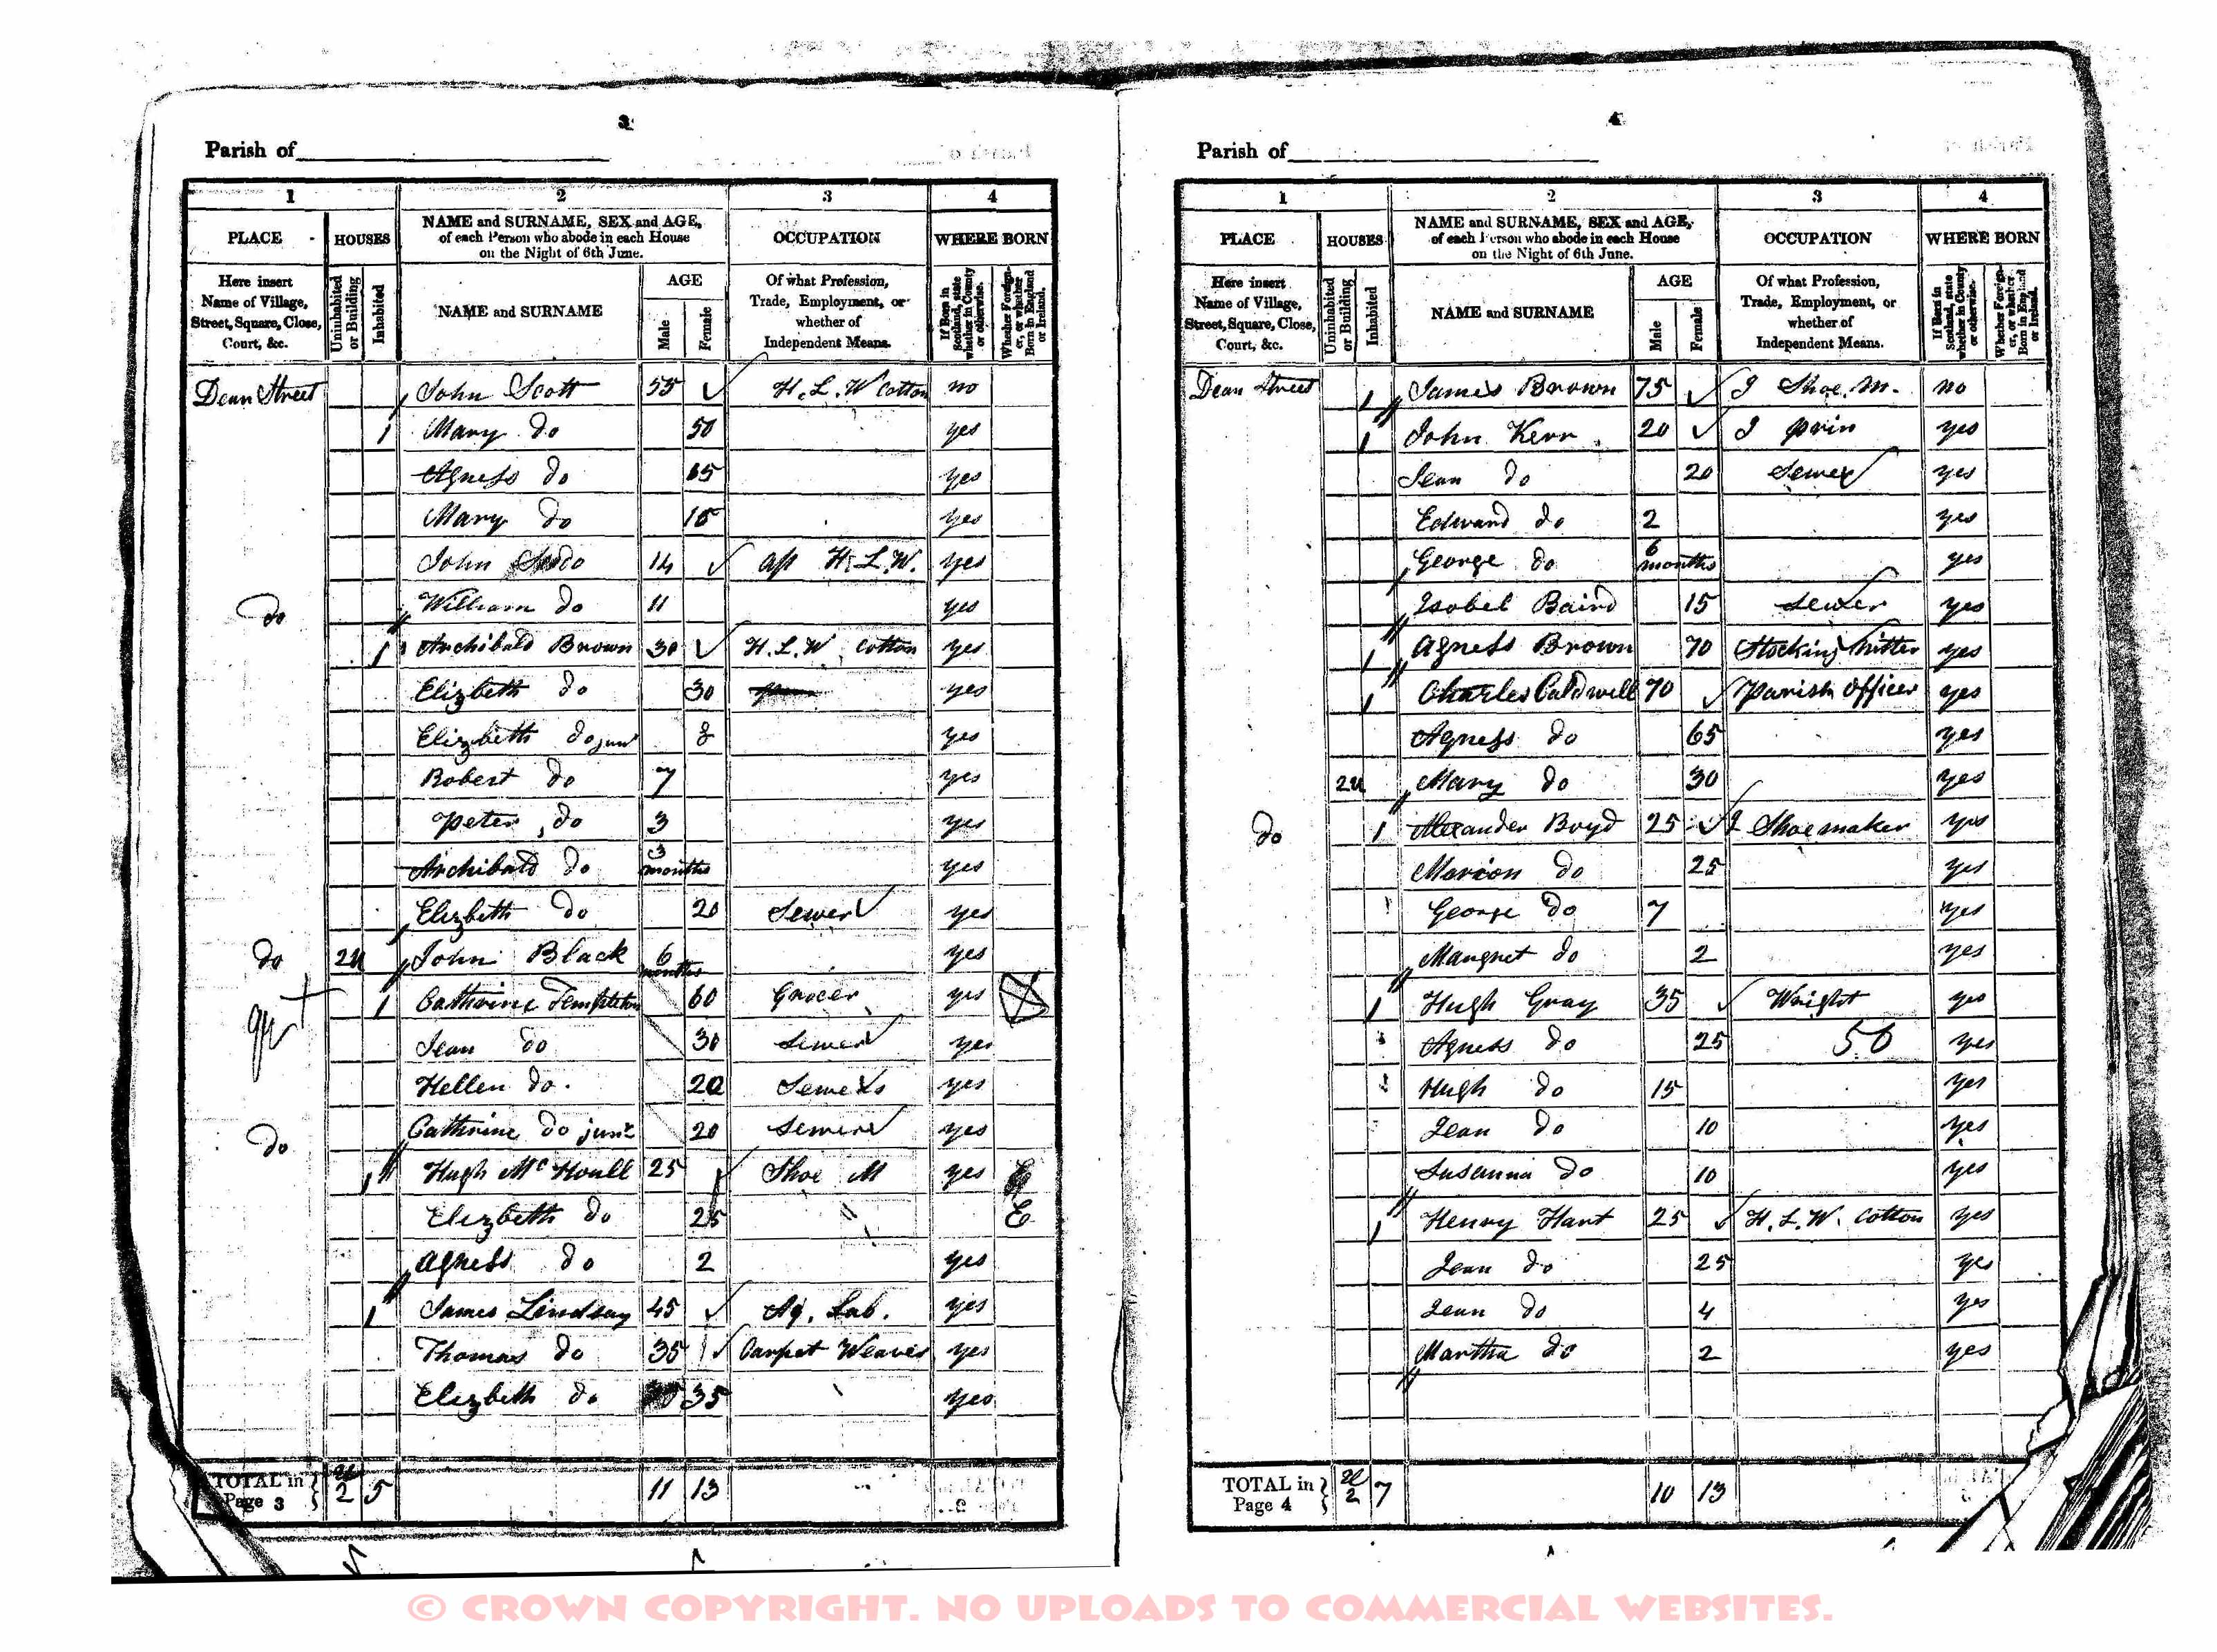 3
Parish of
1 2 3 4
PLACE HOUSES NAME and SURNAME, SEX and AGE, of each Person who abode in each House on the Night of 6th June. OCCUPATION WHERE BORN
Here insert Name of Village, Street, Square, Close, Court, &c. Uninhabited or Building Inhabited NAME and SURNAME AGE Male Female Of what Profession, Trade, Employment, or whether of Independent Means. If Born in Scotland, state whether in County or otherwise. Whether Foreigner, or whether Born in England or Ireland.
Dean Street John Scott 55 ✓ H. L. W Cotton no
1 Mary do 50 yes
Agness do yes
Mary do 15 yes
John do 14 ✓ ap H. L. W. yes
do William do 11 yes
1 Archibald Brown 30 ✓ H. L. W. Cotton yes
Elizbeth do 30 yes
Elizbeth do junr yes
Robert do 7 yes
Peter do 3 yes
Archibald do 3 months yes
Elizbeth do 20 Sewer ✓ yes
do 2u John Black 6 months yes
1 Cathrine Templeton 60 Grocer yes
Jean do 30 Sewer ✓ yes
Hellen do. 20 Sewers yes
do Cathrine do junr 20 Sewers ✓ yes
1 Hugh McHoull 25 ✓ Shoe M yes
Elizbeth do 25 E
Agness do 2 yes
1 James Lindsay 45 ✓ Ag. Lab. yes
Thomas do 35 ✓ Carpet Weaver yes
Elizbeth do 35 yes
TOTAL in Page 3 } u 2 5 11 13
4
Parish of
1 2 3 4
PLACE HOUSES NAME and SURNAME, SEX and AGE, of each Person who abode in each House on the Night of 6th June. OCCUPATION WHERE BORN
Here insert Name of Village, Street, Square, Close, Court, &c. Uninhabited or Building Inhabited NAME and SURNAME AGE Male Female Of what Profession, Trade, Employment, or whether of Independent Means. If Born in Scotland, state whether in County or otherwise. Whether Foreigner, or whether Born in England or Ireland.
Dean Street 1 James Brown 75 ✓ J Shoe. M. no
1 John Kerr 20 ✓ J prin yes
Jean do 20 Sewer ✓ yes
Edward do 2 yes
George do 6 months yes
Isobel Baird 15 Sewer yes
1 Agness Brown 70 Stocking knitter yes
1 Charles Caldwell 70 ✓ Parish Officer yes
Agness do 65 yes
2u Mary do 30 yes
do 1 Alexander Boyd 25 ✓ J Shoemaker yes
Marion do 25 yes
George do 7 yes
Margret do 2 yes
1 Hugh Gray 35 ✓ Wright yes
Agness do 25 50 yes
Hugh do 15 yes
Jean do 10 yes
Susanna do 10 yes
1 Henry Hart 25 ✓ H. L. W. Cotton yes
Jean do 25 yes
Jean do 4 yes
Martha do 2 yes
TOTAL in Page 4 } u 2 7 10 13
© CROWN COPYRIGHT. NO UPLOADS TO COMMERCIAL WEBSITES.